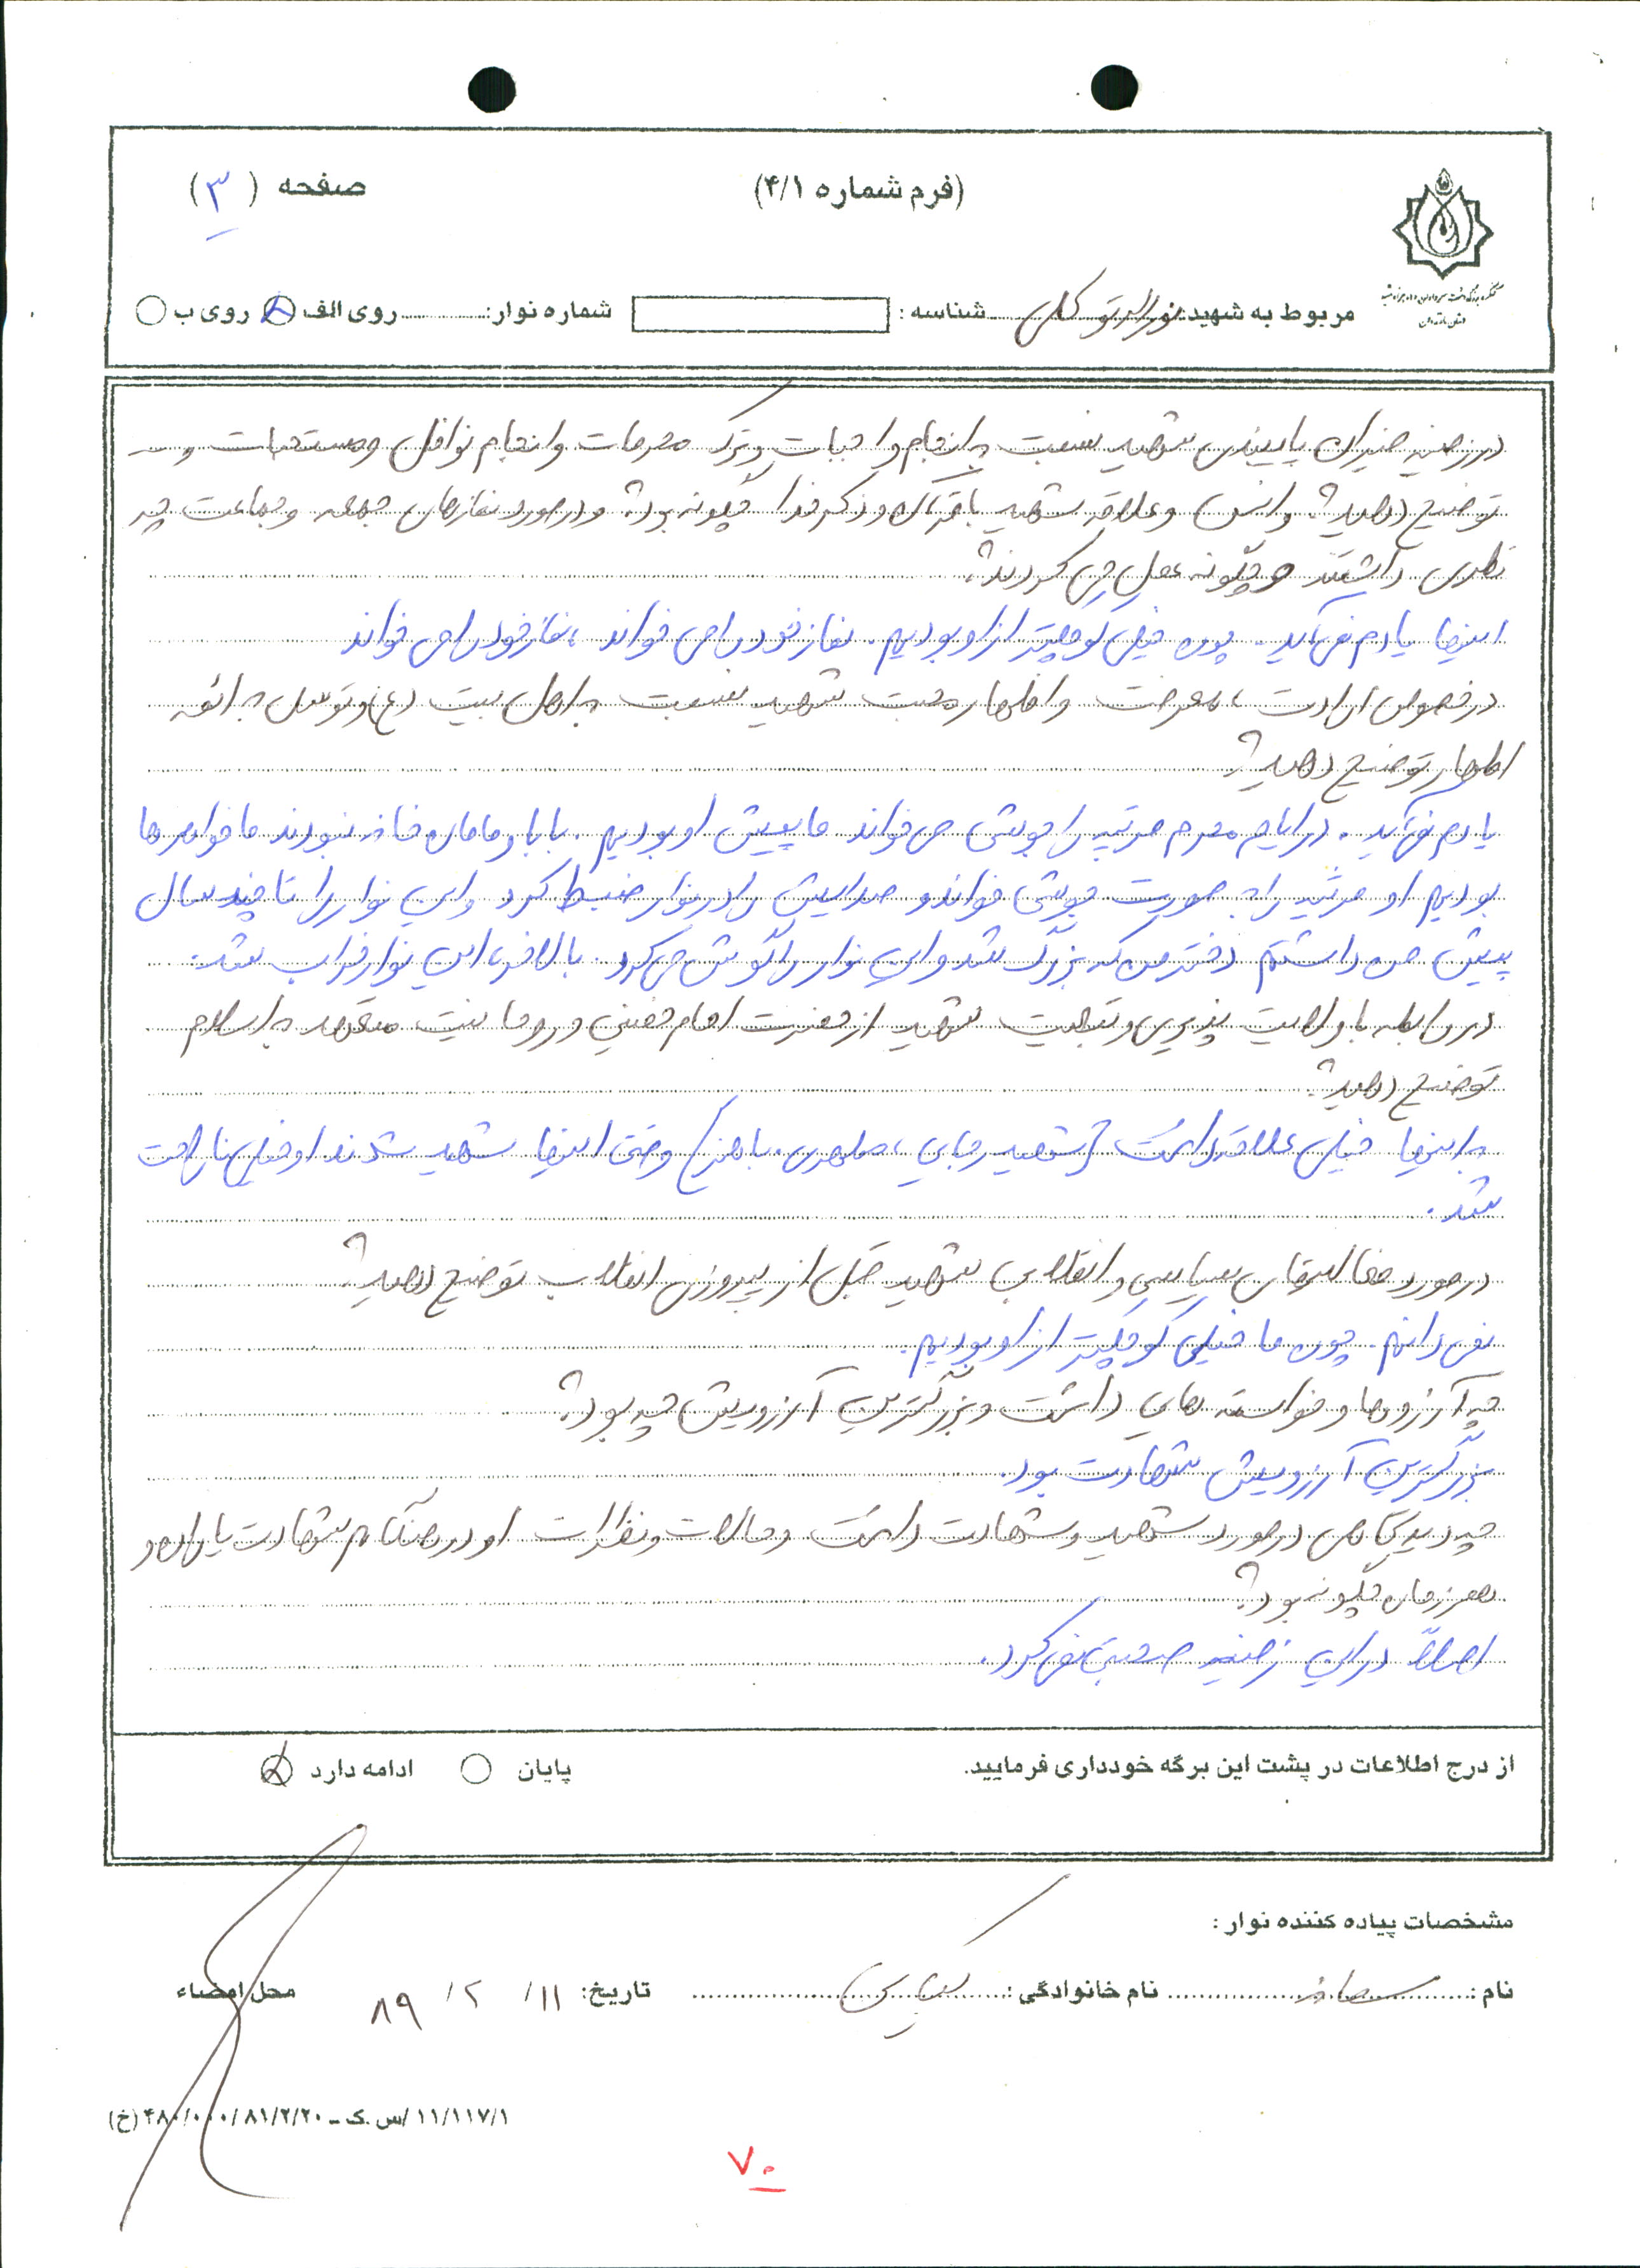 صفحه (۳)
(فرم شماره ۴/۱)
مربوط به شهید: نورالله توکلی شناسه: شماره نوار: روی الف روی ب
در زمینه میزان پایبندی شهید نسبت به انجام واجبات و ترک محرمات و انجام نوافل و مستحبات و ...
توضیح دهید؟ و انس و علاقه شهید با قرآن و ذکر خدا چگونه بود؟ و در مورد نمازهای جمعه و جماعت چه
نظری داشتند و چگونه عمل می کردند؟
اینها یادم نمی آید. چون خیلی کوچکتر از او بودیم. نماز خود را می خواند، نماز خود را می خواند
در خصوص ارادت، معرفت و اظهار محبت شهید نسبت به اهل بیت (ع) و توسل به ائمه
اطهار توضیح دهید؟
یادم نمی آید. در ایام محرم مرثیه را چوبشی می خواند ما پیش او بودیم. بابا و مامان خانه نبودند ما خواهرها
بودیم او مرثیه را به صورت چوبشی خواند و صدایش را در نوار ضبط کرد و این نوار را تا چند سال
پیش من داشتم دختر من که بزرگ شد و این نوار را گوش می کرد. بالاخره این نوار خراب شد.
در رابطه با ولایت پذیری و تبعیت شهید از حضرت امام خمینی و روحانیت متعهد به اسلام
توضیح دهید؟
به اینها خیلی علاقه داشت [شهید رجایی، مطهری، باهنر] وقتی اینها شهید شدند او خیلی ناراحت
شد.
در مورد فعالیتهای سیاسی و انقلابی شهید قبل از پیروزی انقلاب توضیح دهید؟
نمی دانم. چون ما خیلی کوچکتر از او بودیم.
چه آرزوها و خواسته هایی داشت و بزرگترین آرزویش چه بود؟
بزرگترین آرزویش شهادت بود.
چه دیدگاهی در مورد شهید و شهادت داشت و حالات و نظرات او در هنگام شهادت یاران و
همرزمان چگونه بود؟
اصلاً در این زمینه صحبتی نمی کرد.
از درج اطلاعات در پشت این برگه خودداری فرمایید. پایان ادامه دارد
مشخصات پیاده کننده نوار:
نام: سمانه نام خانوادگی: تاریخ: ۱۱/ ۲/ ۸۹ محل امضاء
۱۱/۱۱۷/۱/س.ک - ۴۸۰/۰۰۰/۸۱/۲/۲۰ (خ)
۷۰